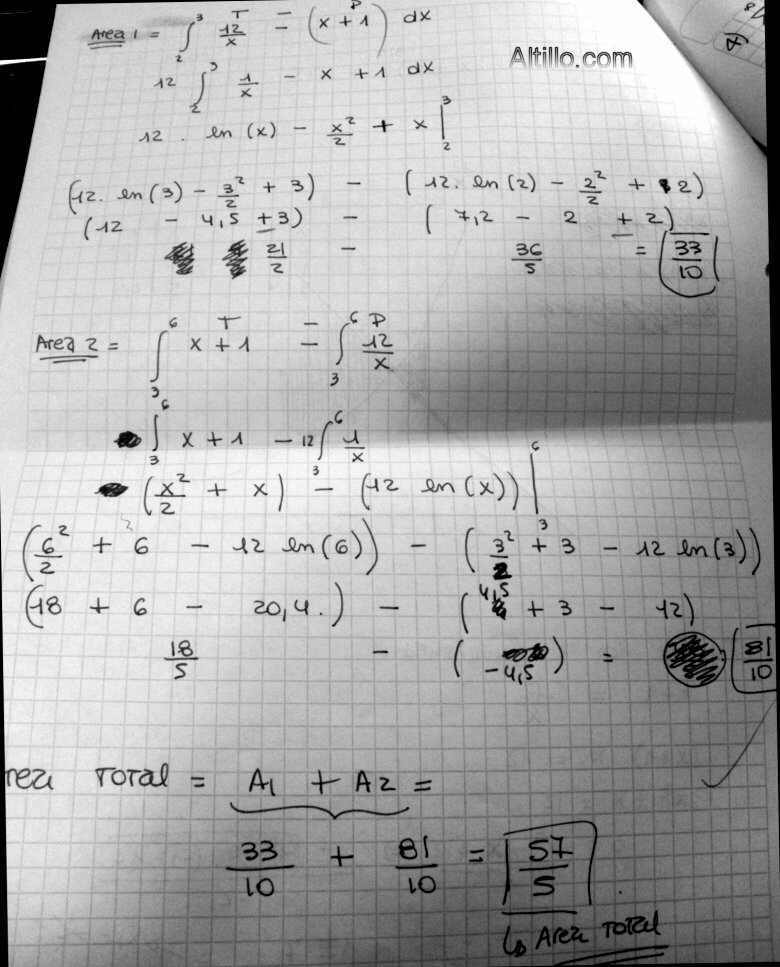 Area 1 = ∫₂³ T 12/x − (P x + 1) dx
Altillo.com
12 ∫₂³ 1/x − x + 1 dx
12 . ln (x) − x²/2 + x |₂³
(12. ln(3) − 3²/2 + 3) − (12. ln(2) − 2²/2 + 2)
(12 − 4,5 + 3) − (7,2 − 2 + 2)
21/2 − 36/5 = 33/10
Area 2 = ∫₃⁶ T x + 1 − ∫₃⁶ P 12/x
∫₃⁶ x + 1 − 12 ∫₃⁶ 1/x
(x²/2 + x) − (12 ln(x)) |₃⁶
(6²/2 + 6 − 12 ln(6)) − (3²/2 + 3 − 12 ln(3))
(18 + 6 − 20,4.) − (4,5 + 3 − 12)
18/5 − (−4,5) = 81/10
rea Total = A1 + A2 =
33/10 + 81/10 = 57/5
↳ Area Total